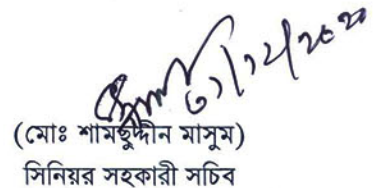 ৩১/১২/২০২০
(মোঃ শামছুদ্দীন মাসুম)
সিনিয়র সহকারী সচিব